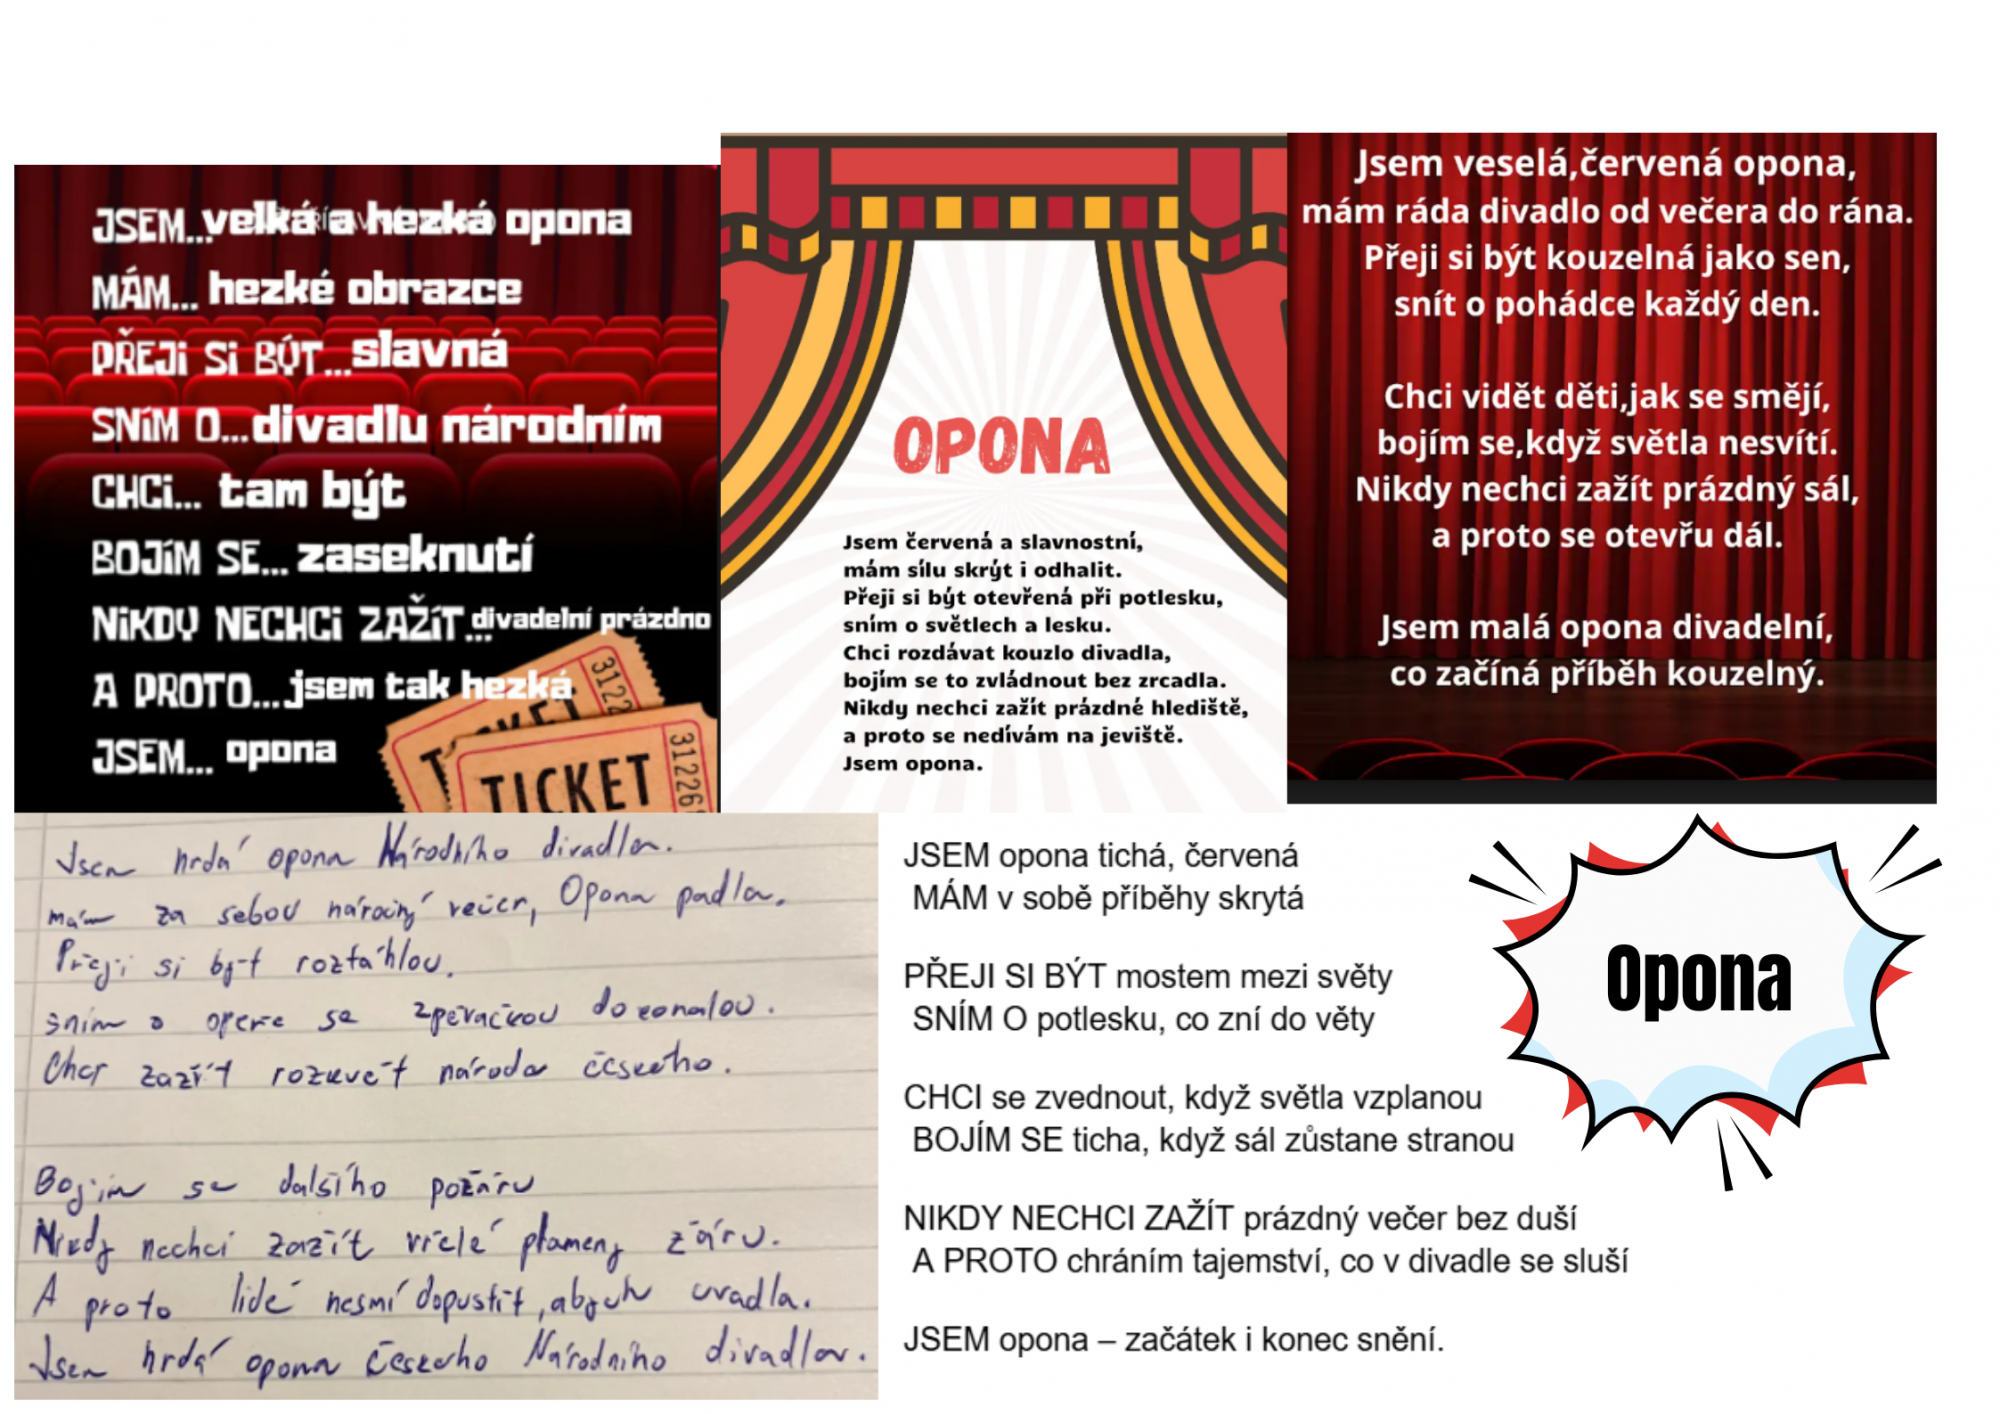 JSEM...velká a hezká opona
MÁM... hezké obrazce
PŘEJI SI BÝT...slavná
SNÍM O...divadlu národním
CHCI... tam být
BOJÍM SE... zaseknutí
NIKDY NECHCI ZAŽÍT...divadelní prázdno
A PROTO...jsem tak hezká
JSEM... opona
TICKET
3122
TICKET
31226
OPONA
Jsem červená a slavnostní,
mám sílu skrýt i odhalit.
Přeji si být otevřená při potlesku,
sním o světlech a lesku.
Chci rozdávat kouzlo divadla,
bojím se to zvládnout bez zrcadla.
Nikdy nechci zažít prázdné hlediště,
a proto se nedívám na jeviště.
Jsem opona.
Jsem veselá,červená opona,
mám ráda divadlo od večera do rána.
Přeji si být kouzelná jako sen,
snít o pohádce každý den.
Chci vidět děti,jak se smějí,
bojím se,když světla nesvítí.
Nikdy nechci zažít prázdný sál,
a proto se otevřu dál.
Jsem malá opona divadelní,
co začíná příběh kouzelný.
Jsem hrdá opona Národního divadla.
mám za sebou náročný večer, Opona padla.
Přeji si být roztáhlou.
sním o opeře se zpěvačkou dokonalou.
Chci zažít rozkvět národa českého.
Bojím se dalšího požáru
Nikdy nechci zažít vřelé plameny žáru.
A proto lidé nesmí dopustit, abych uvadla.
Jsem hrdá opona Českého Národního divadla.
JSEM opona tichá, červená
MÁM v sobě příběhy skrytá
PŘEJI SI BÝT mostem mezi světy
SNÍM O potlesku, co zní do věty
CHCI se zvednout, když světla vzplanou
BOJÍM SE ticha, když sál zůstane stranou
NIKDY NECHCI ZAŽÍT prázdný večer bez duší
A PROTO chráním tajemství, co v divadle se sluší
JSEM opona – začátek i konec snění.
Opona